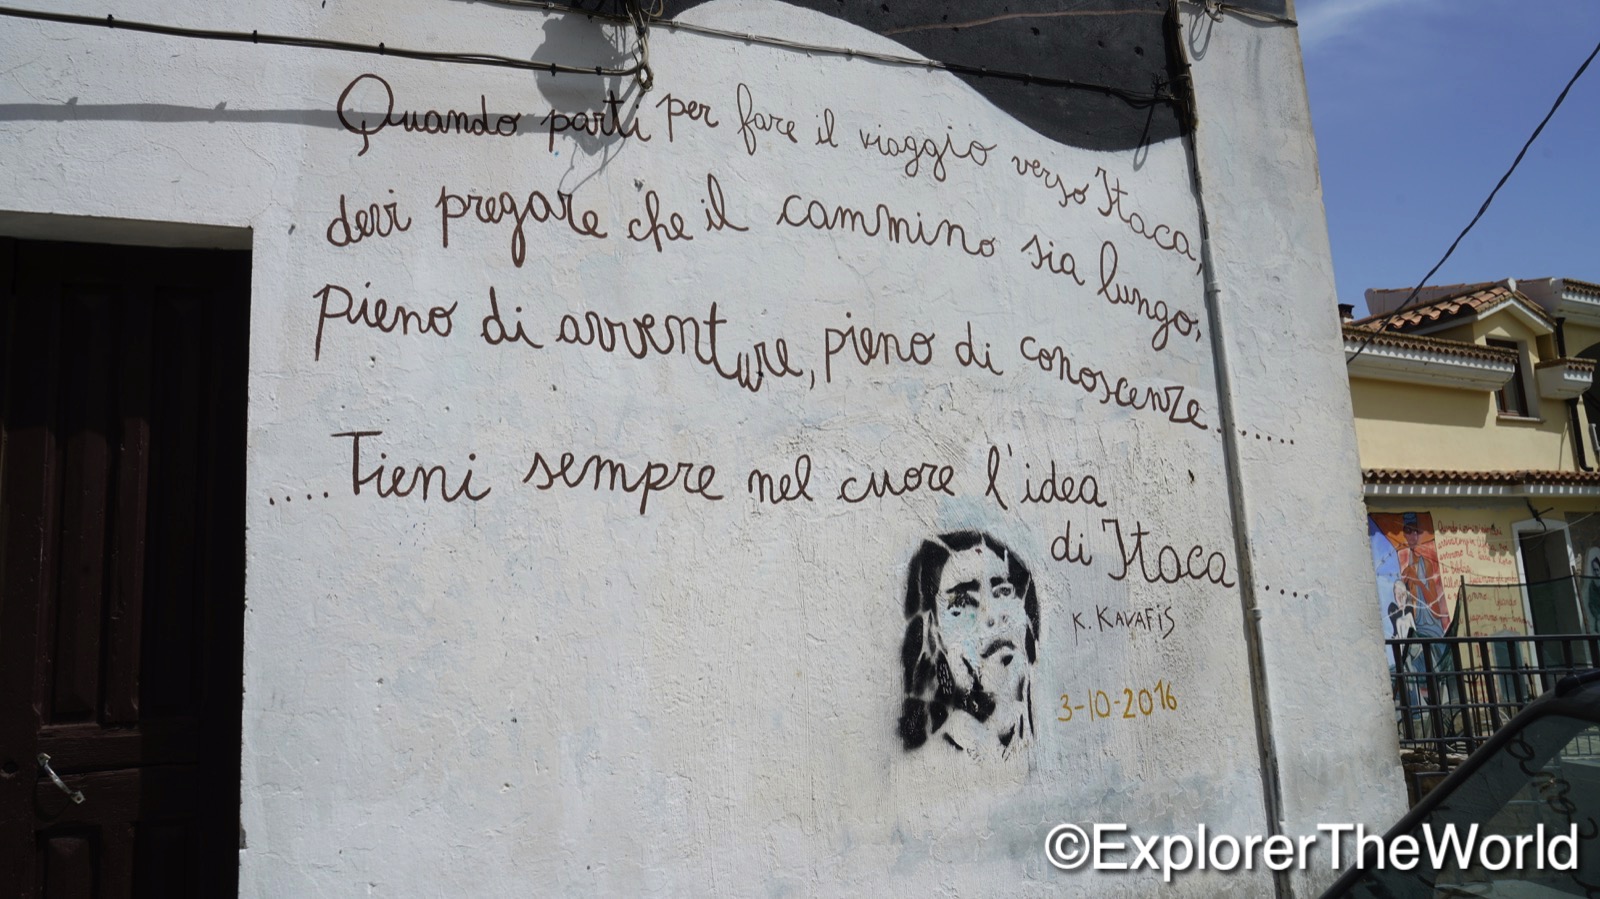 Quando parti per fare il viaggio verso Itaca,
devi pregare che il cammino sia lungo,
pieno di avventure, pieno di conoscenze.......
....Tieni sempre nel cuore l'idea
di Itaca.....
K. KAVAFIS
3-10-2016
©ExplorerTheWorld